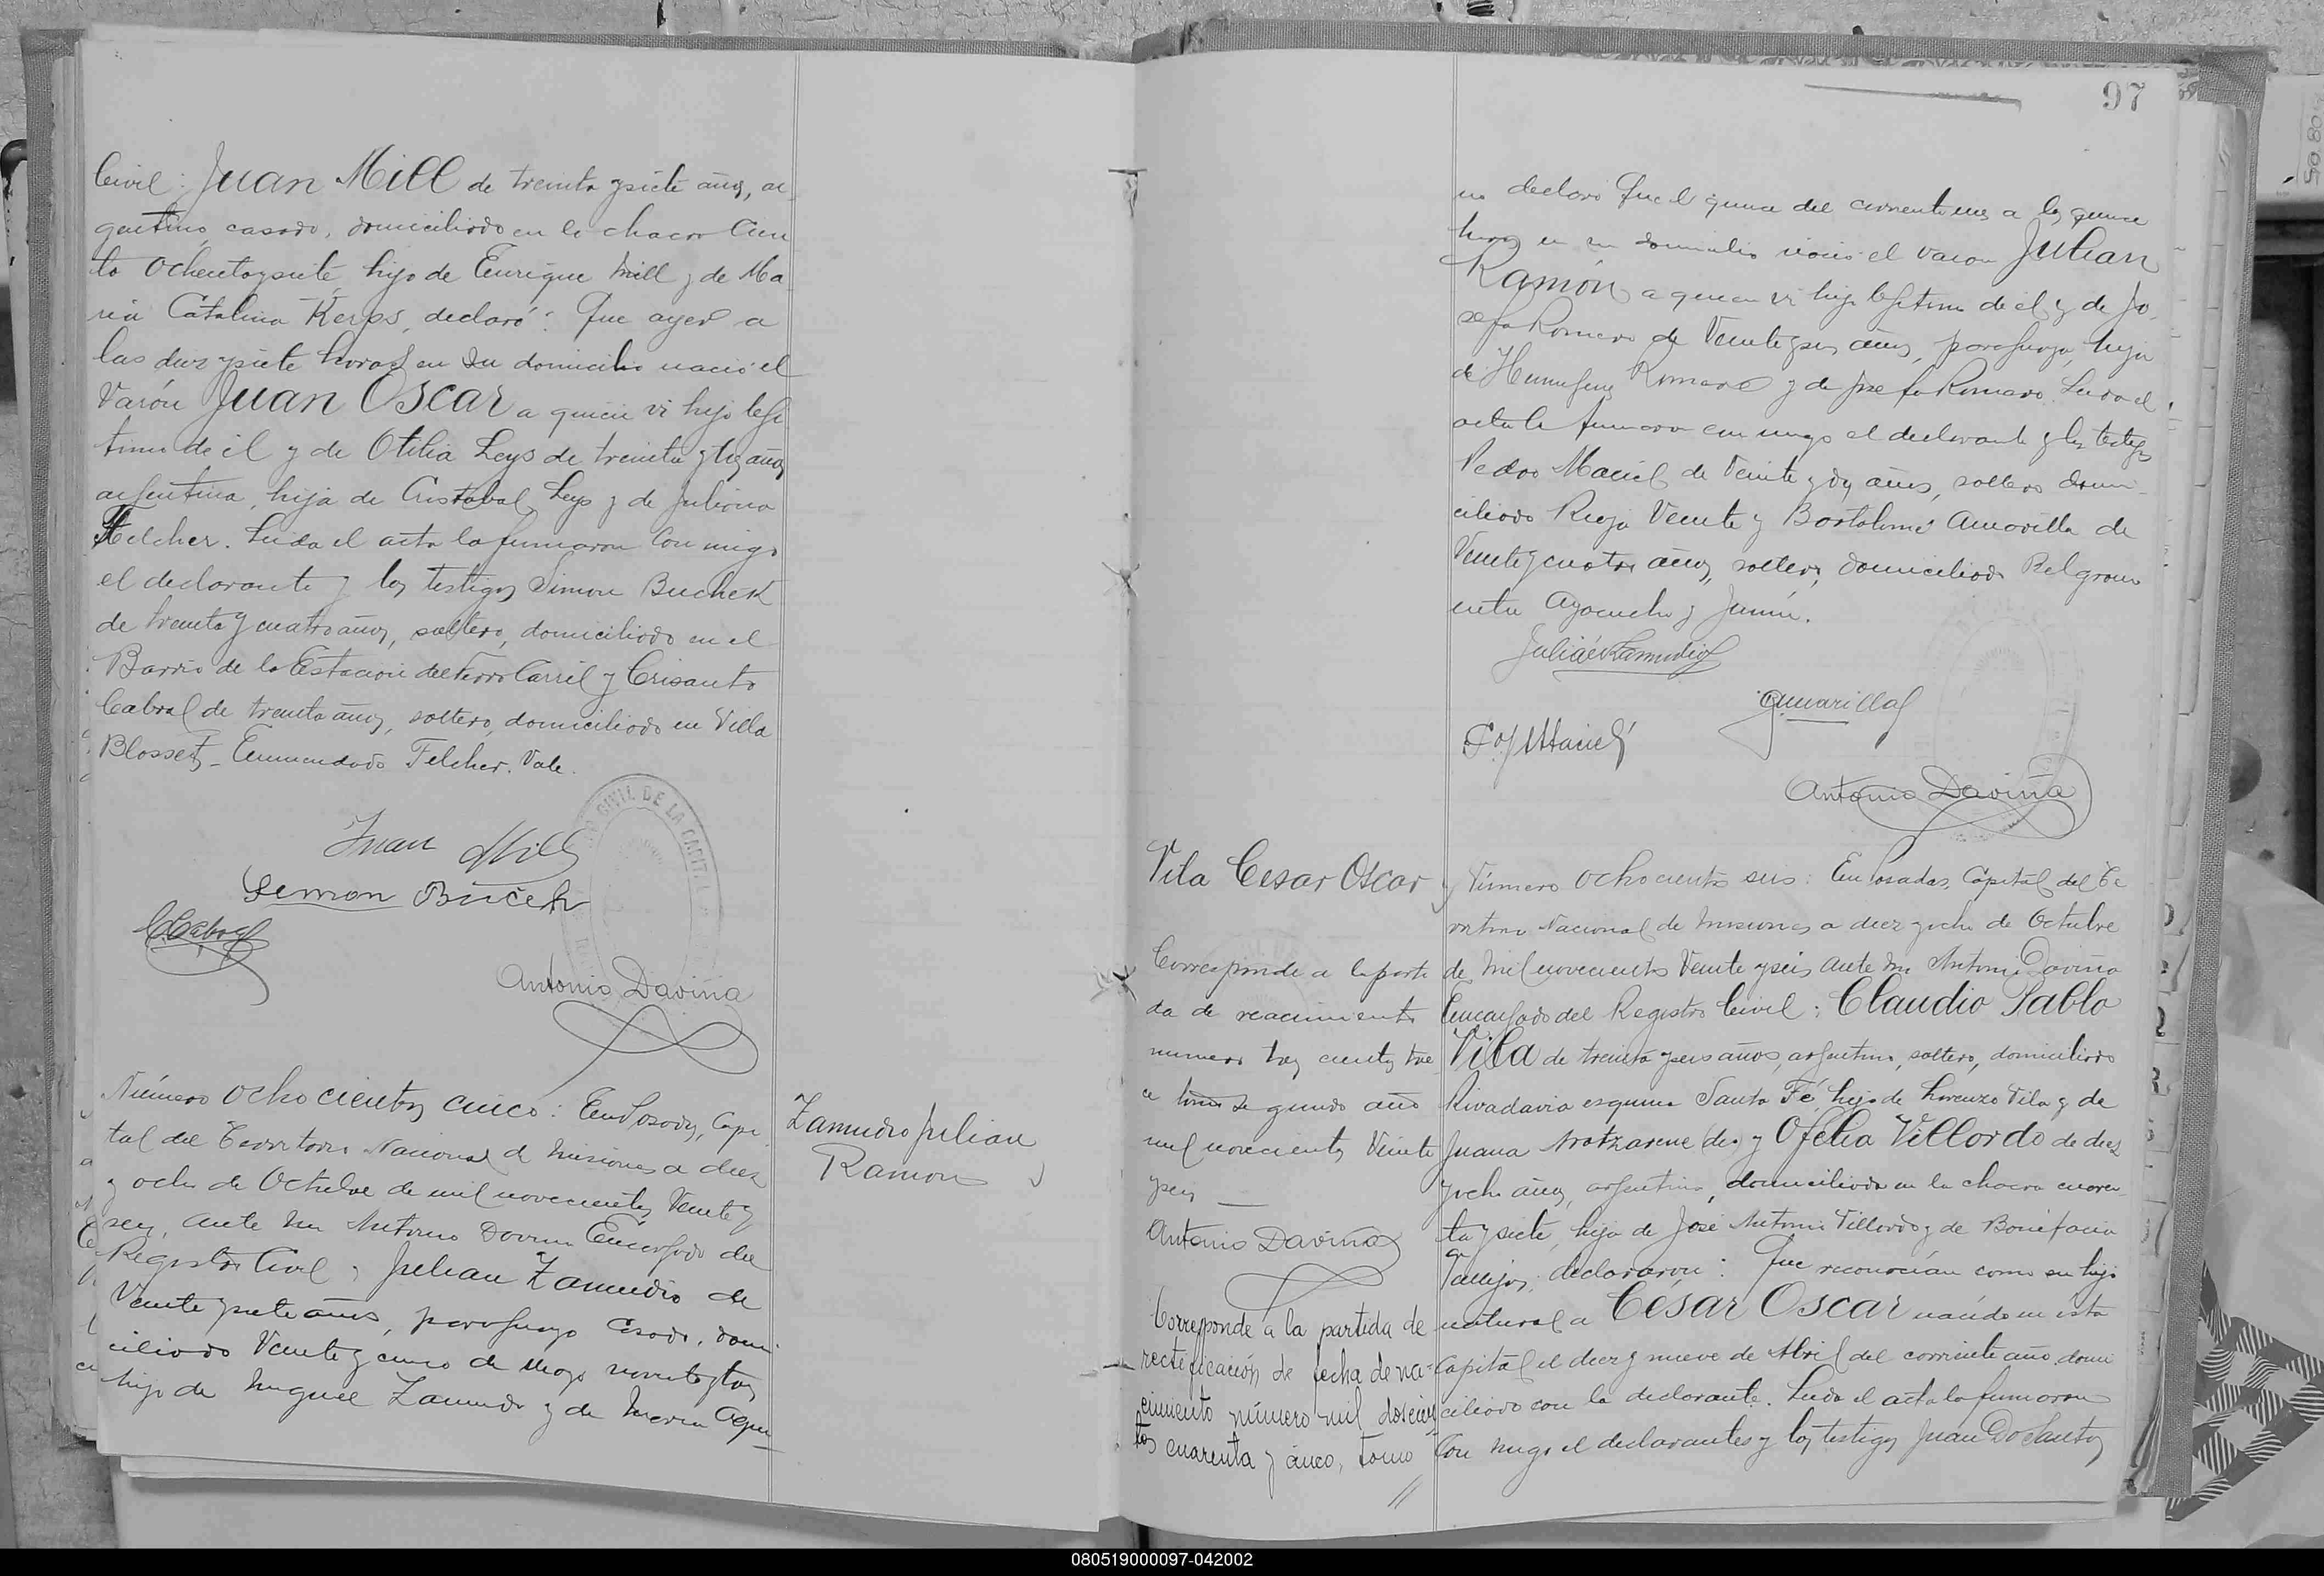 Civil: Juan Mill de treinta y siete años, ar
gentino, casado, domiciliado en la chacra Cien
to Ochenta y siete, hijo de Enrique Mill y de Ma
ria Catalina Kerps, declaró: Que ayer a
las diez y siete horas en su domicilio nació el
Varón Juan Oscar a quien vi hijo legi
timo de él y de Otilia Leys de treinta y tres años
argentina, hija de Cristobal Leys y de Juliana
Felcher. Leida el acta la firmaron con migo
el declarante y los testigos Simon Buchek
de treinta y cuatro años, soltero, domiciliado en el
Barrio de la Estacion del Ferro Carril y Crisanto
Cabral de treinta años, soltero, domiciliado en Villa
Blosset_ Enmendado Felcher. Vale.
CIVIL DE LA CAPITAL
Juan Mill
Semon Buceh
C. Cabral
Antonio Daviña
Número Ochocientos cinco: En Posadas, Capi
tal del Territorio Nacional de Misiones a diez
y ocho de Octubre de mil novecientos Veinte y
seis, ante mi Antonio Daviña Encargado del
Registro Civil; Julian Zamudio de
Veinte y siete años, paraguayo, casado, domi
ciliado Veinte y cinco de Mayo noventa y tres,
hijo de Miguel Zamudio y de Maria Aqui
Zamudio Julian
Ramon
97
no declaró Que el quince del corriente mes a las quince
horas en su domicilio nació el varon Julian
Ramón a quien vi hijo legitimo de él y de Jo
sefa Romero de Veinte y seis años, paraguaya, hija
de Romero y de Josefa Romero. Leida el
acta la firmaron con migo el declarante y los testigos
Pedro Maciel de Veinte y dos años, soltero domi
ciliado Rioja Veinte y Bartolomé Amarilla de
Veinte y cuatro años, soltero, domiciliado Belgrano
entre Ayacucho y Junin.
Julián Zamudio
Amarilla
P. Maciel
Antonio Daviña
Vila Cesar Oscar
Número Ochocientos seis: En Posadas, Capital del Te
rritorio Nacional de Misiones a diez y ocho de Octubre
de mil novecientos Veinte y seis ante mi Antonio Daviña
Encargado del Registro Civil: Claudio Pablo
Vila de treinta y seis años, argentino, soltero, domiciliado
Rivadavia esquina Santa Fé, hijo de Lorenzo Vila y de
Juana y Ofelia Villordo de diez
y ocho años, argentina, domiciliada en la chacra cuaren
ta y siete, hija de José Antonio Villordo y de Bonifacia
Vallejos; declararon: Que reconocían como su hijo
natural a Cesar Oscar nacido en ésta
Capital el diez y nueve de Abril del corriente año, domi
ciliado con la declarante. Leida el acta la firmaron
Con migo el declarantes y los testigos Juan Do Santos
Corresponde a la parti
da de nacimiento
numero tres cientos tre
ce tomo segundo año
mil novecientos Veinte
y seis
Antonio Daviña
Corresponde a la partida de
rectificación de fecha de na=
cimiento número mil doscien
tos cuarenta y cinco, tomo
//
080519000097-042002